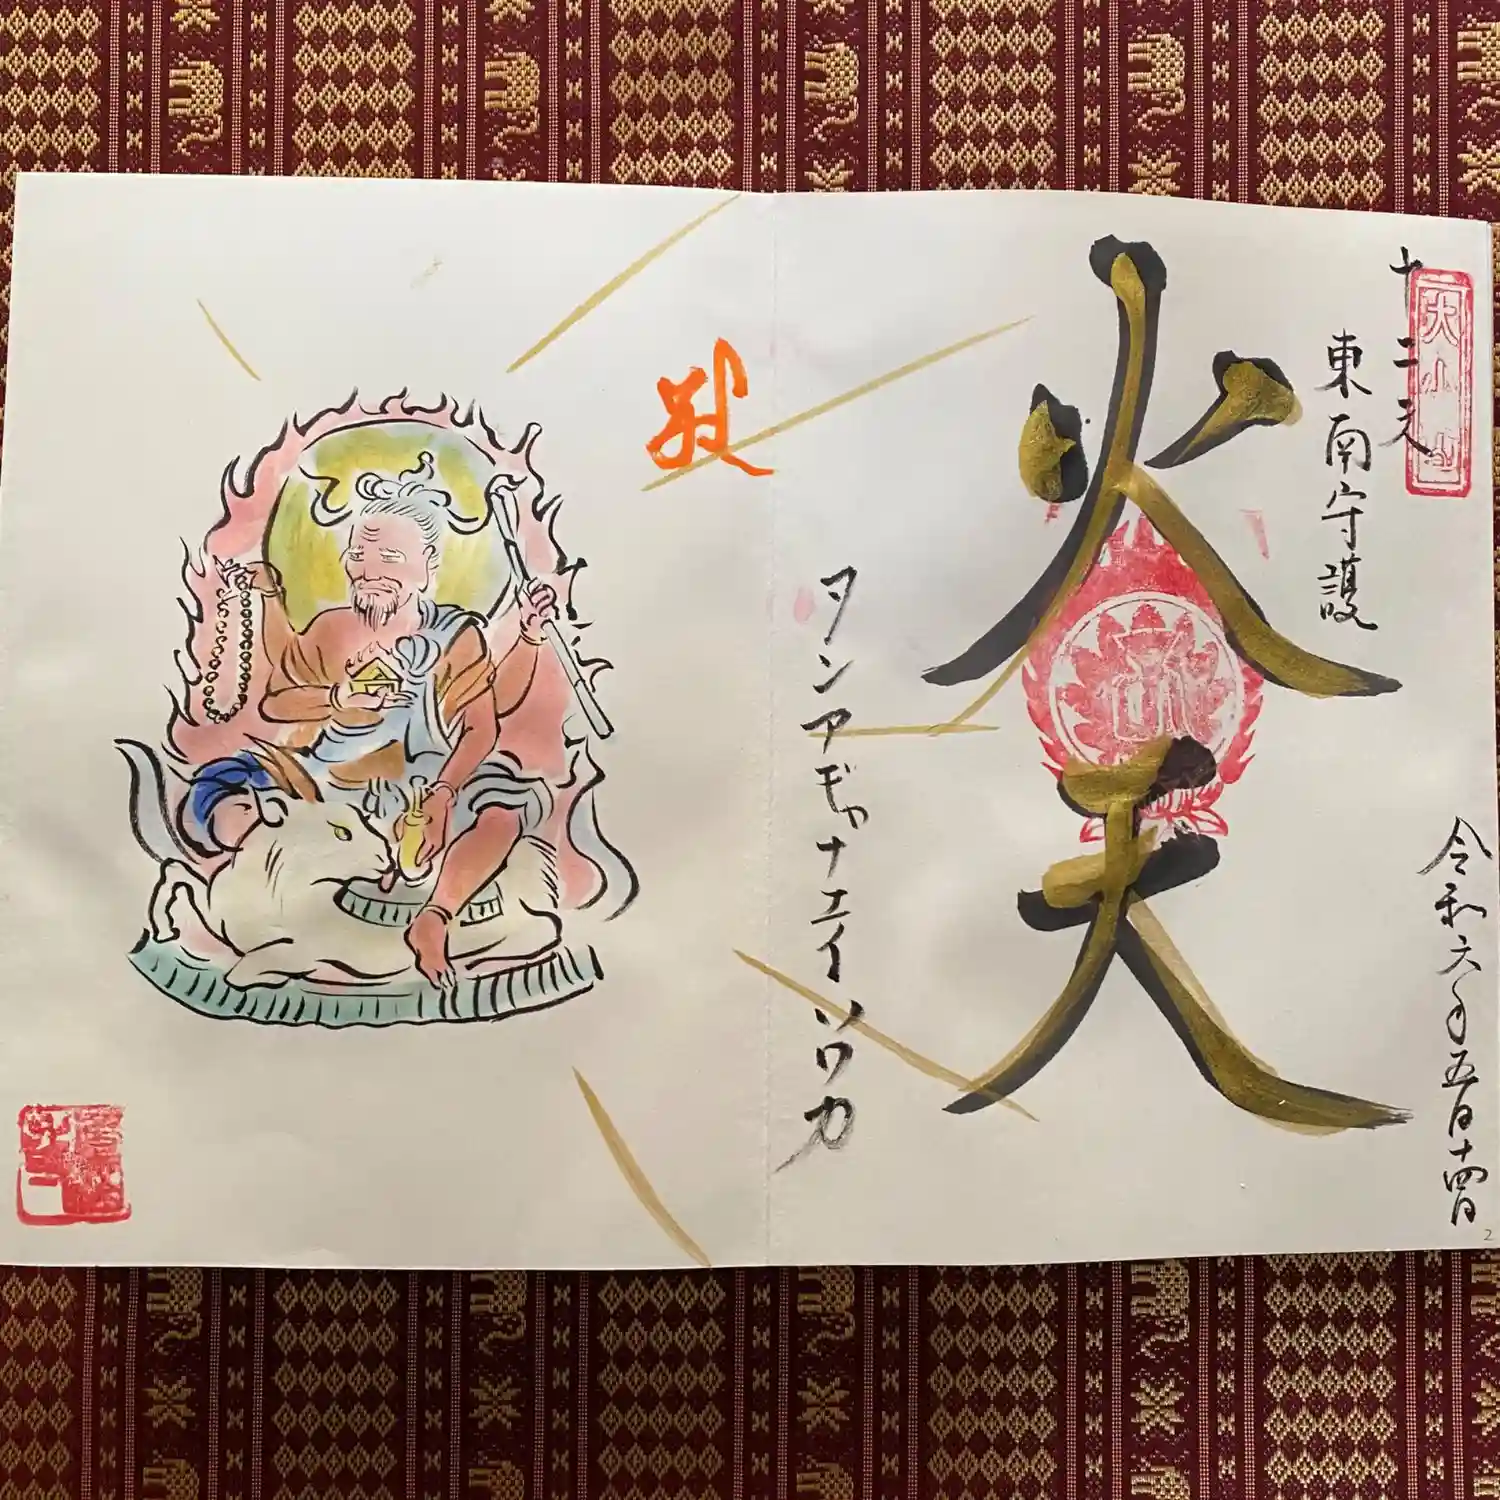 十二天
東南守護
火天
ヲンアギャナエイソワカ
令和六年五月十四日
2